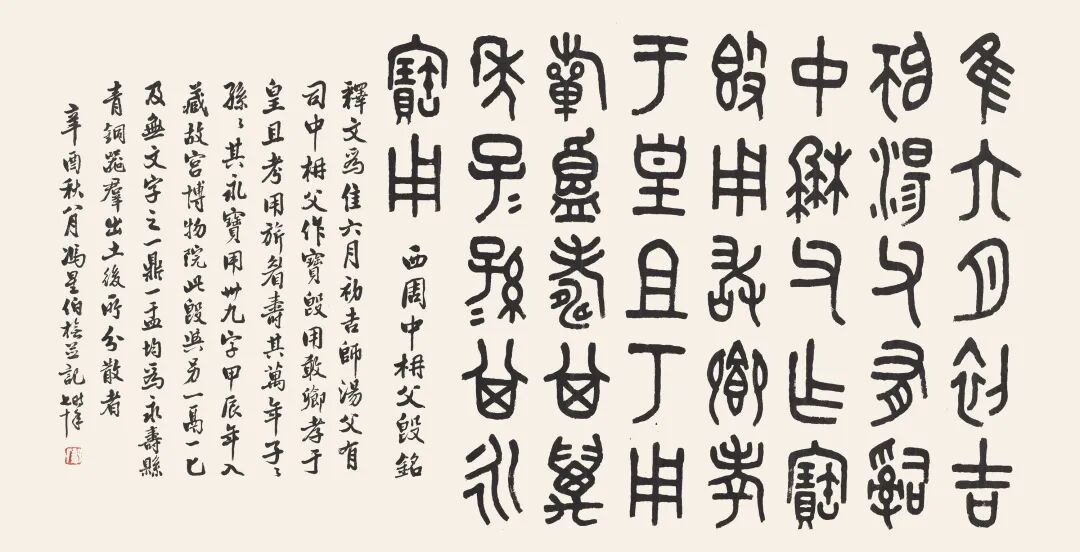 隹六月初吉
師湯父有司
中枏父乍寶
𣪘用敢鄉孝
于皇且丂用
旂眉壽其萬
年子〻孫〻其永
寶用
西周中枏父𣪘銘
釋文爲隹六月初吉師湯父有
司中枏父作寶𣪘用敢鄉孝于
皇且考用旂眉壽其萬年子〻
孫〻其永寶用卅九字甲辰年入
藏故宮博物院此𣪘與另一鬲一匕
及無文字之一鼎一盂均爲永壽縣
青銅器羣出土後所分散者
辛酉秋八月馮星伯橅並記